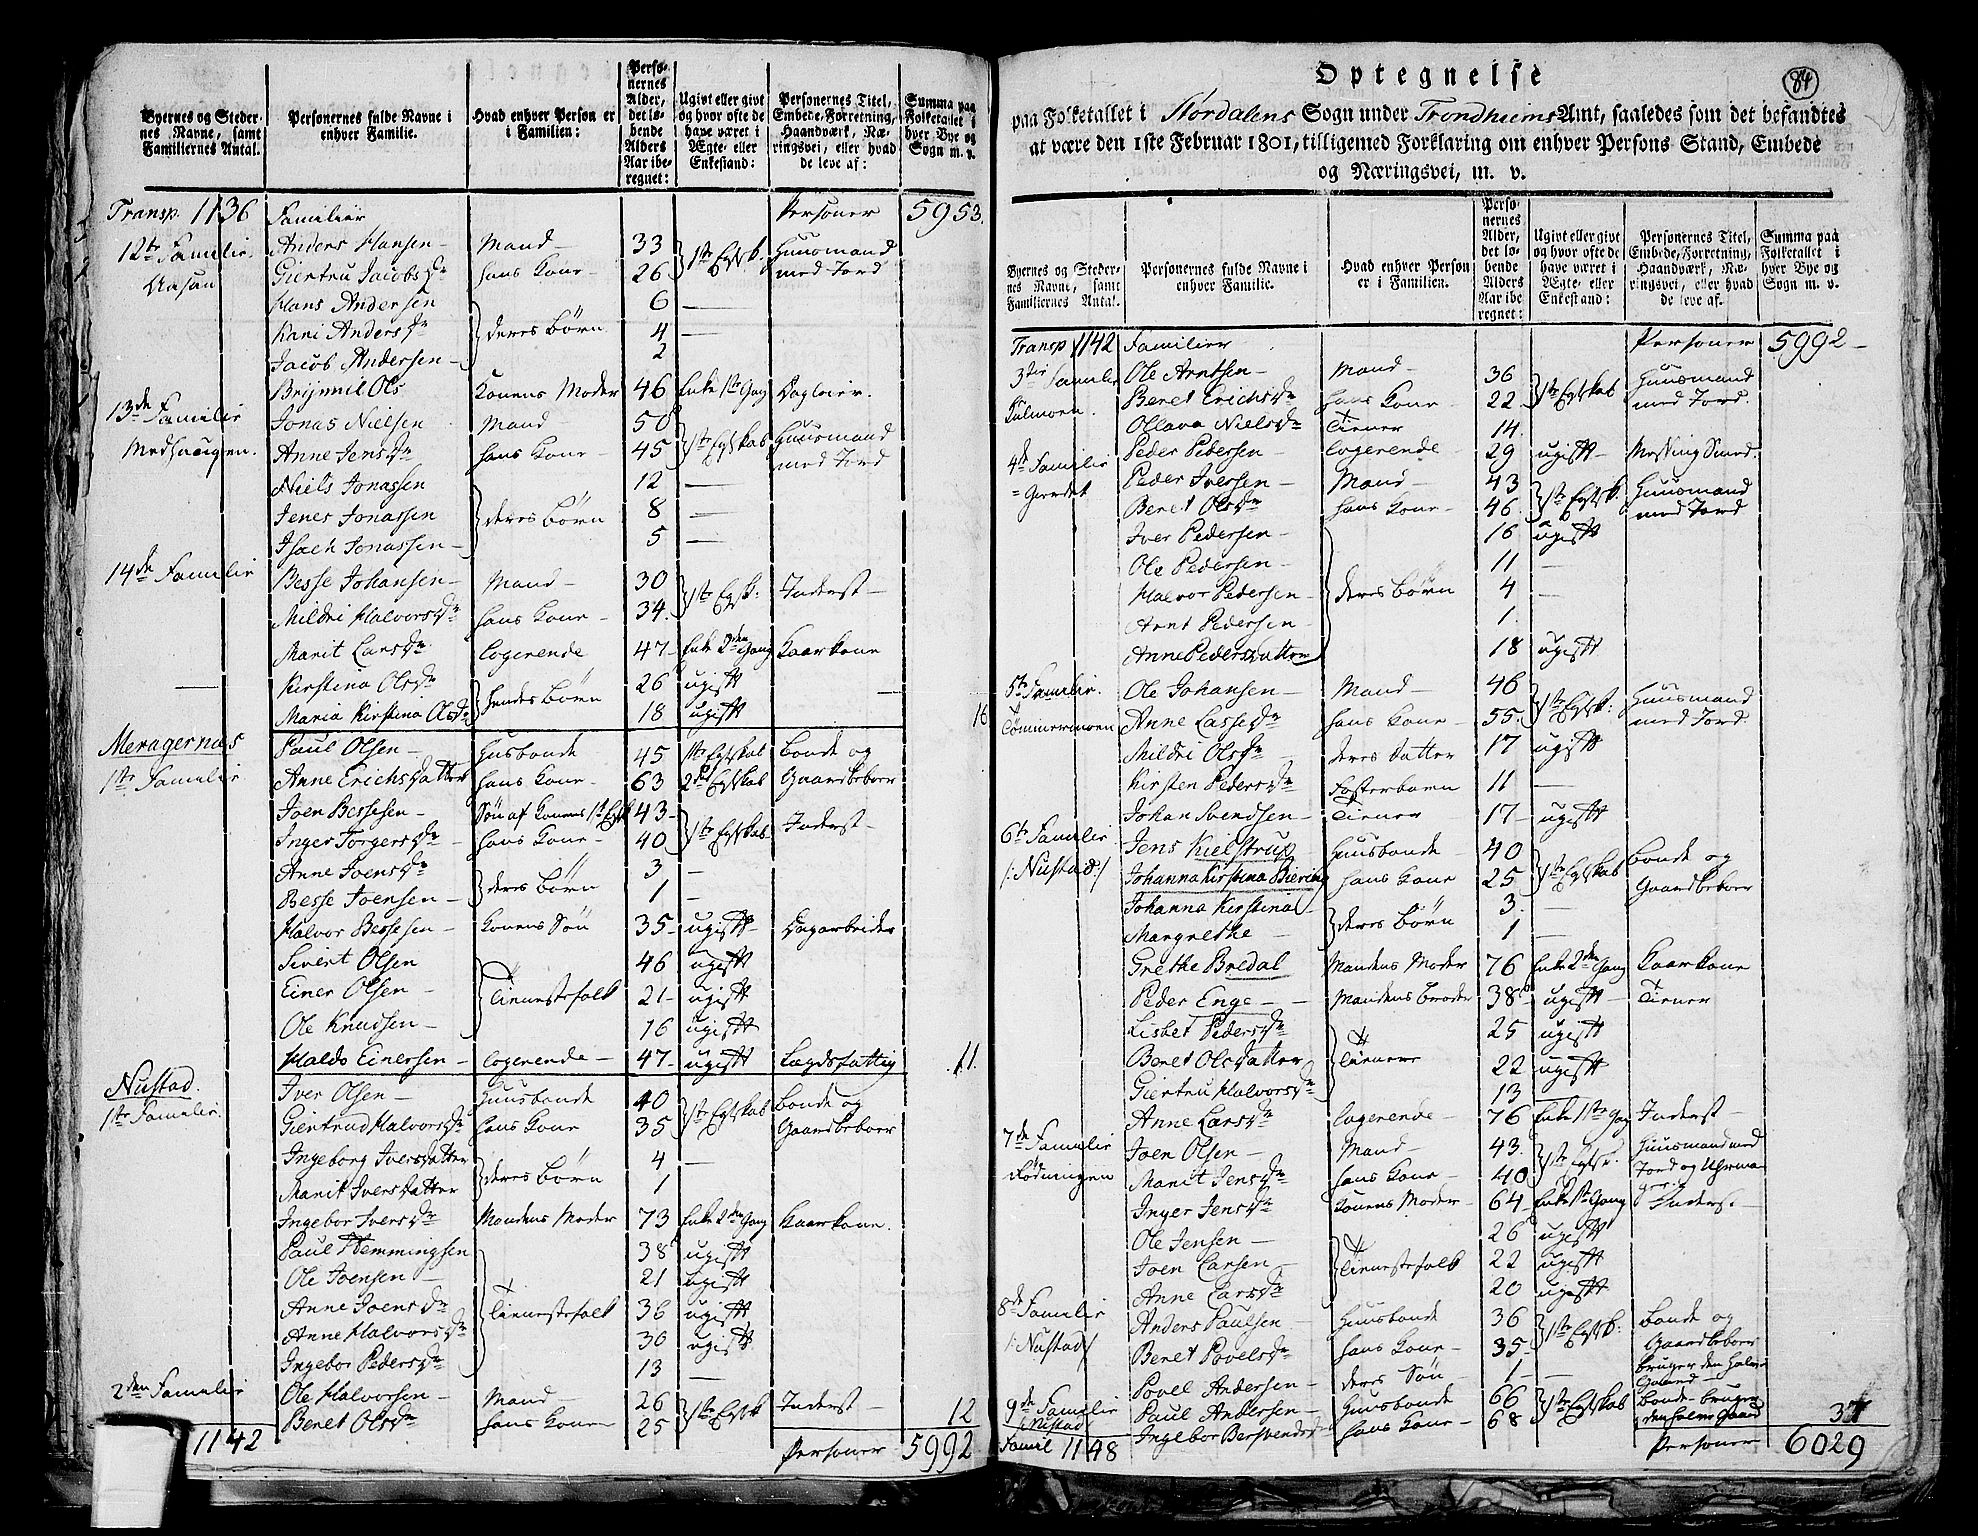 Byernes og Steder-
nes Navne, samt
Familiernes Antal.
Personernes fulde Navne i
enhver Familie.
Hvad enhver Person er
i Familien:
Perso-
nernes
Alder,
det lø-
bende
Alders
Aar ibe-
regnet:
Ugivt eller givt
og hvor ofte de
have været i
Ægte- eller
Enkestand:
Personernes Titel,
Embede, Forretning,
Haandværk, Næ-
ringsvei, eller hvad
de leve af:
Summa paa
Folketallet i
hver Bye og
Sogn m. v.
Transp. 1136 Familier Personer 5953.
12te Familie. Anders Hansen Mand 33 1ste Egsk. Huusmand
Aasan Giertru Jacobsdr hans Kone 26 med Jord
Hans Andersen 6 —
Kari Andersdr deres Børn 4 —
Jacob Andersen 2
Brijnnil Ols Konens Moder 46 Enke 1ste Gang Dagleier.
13de Familie Jonas Nielsen Mand 50 1ste Egskab Huusmand
Medhaugen. Anne Jensdr hans Kone 45 med Jord
Niels Jonassen 12 —
Jenes Jonassen deres Børn 8 —
Isach Jonassen 5 —
14de Familie Besse Johansen Mand 30 1ste Egsk: Inderst
Mildri Halvorsdr hans Kone 34.
Marit Larsdr Logerende 47 Enke 2den Gang Kaarkone
Kirstina Olsdr hendes Børn 26 ugift
Maria Kirstina Olsdr 18 ugift 16
Meragernæs Paul Olsen Husbonde 45 1ste Egskab Bonde og
1ste Familie Anne Erichsdatter hans Kone 63 2det Egskab Gaardbeboer
Joen Bessesen Søn af Konens 1st Egsk 43 1ste Egskab Inderst
Inger Torgersdr hans Kone 40
Anne Joensdr deres Børn 3 —
Besse Joensen 1 —
Halvor Bessesen Konens Søn 35 ugift Dagarbeider
Sivert Olsen 46 ugift
Einer Olsen Tienestefolk 21 ugift
Ole Knudsen 16 ugift
Haldo Einersen Logerende 47 ugift Lægdsfattig 11.
Nustad. Iver Olsen Huusbonde 40 1ste Egskab Bonde og
1ste Familie. Giertrud Halvorsdr hans Kone 35 Gaardbeboer
Ingeborg Iversdatter deres Børn 4 —
Marit Iversdatter 1
Ingebor Iversdr Mandens Moder 73 Enke 2den Gang Kaarkone.
Paul Hemmingsen 38 ugift
Ole Joensen 21 ugift
Anne Joensdr Tienestefolk 36 ugift
Anne Halvorsdr 30 ugift
Ingebor Pedersdr 13 —
2den Familie Ole Halvorsen Mand 26 1ste Egsk Inderst
Beret Olsdr hans Kone 25 12
1142 Personer 5992
84
Optegnelse
paa Folketallet i Størdalens Sogn under Trondhiems Amt, saaledes som det befandtes
at være den 1ste Februar 1801, tilligemed Forklaring om enhver Persons Stand, Embede
og Næringsvei, m. v.
Byernes og Steder-
nes Navne, samt
Familiernes Antal.
Personernes fulde Navne i
enhver Familie.
Hvad enhver Person
er i Familien:
Perso-
nernes
Alder,
det lø-
bende
Alders
Aar ibe-
regnet:
Ugivt eller givt
og hvor ofte de
have været i
Ægte- eller
Enkestand:
Personernes Titel,
Embede, Forretning,
Haandværk, Næ-
ringsvei, eller hvad
de leve af.
Summa paa
Folketallet i
hver Bye og
Sogn m. v.
Transp 1142 Familier Personer 5992
3die Familie Ole Arntsen Mand 36 1ste Egskab Huusmand
Beret Erichsdr hans Kone 22 med Jord.
Ollava Nielsdr Tiener 14.
4de Familie Peder Pedersen Logerende 29 ugift Messing Smed.
Gierdet Peder Iversen Mand 43 1ste Egsk. Huusmand
Beret Olsdr hans Kone 46. med Jord
Iver Pedersen 16 ugift
Ole Pedersen 11 —
Halvor Pedersen deres Børn 4 —
Arnt Pedersen 1.
Anne Pedersdatter 18 ugift
5te Familie. Ole Johansen Mand 46 1ste Egsk: Huusmand
Tømmermoen Anne Lassesdr hans Kone 55 med Jord
Mildri Olsdr deres datter 17 ugift
Kirsten Pedersdr Fosterbarn 11 —
Johan Svendsen Tiener 17 ugift
6te Familie Jens Kielstrup Huusbonde 40 1ste Egskab Bonde og
/: Nustad :/ Johanna Kirstina Biering hans Kone 25 Gaardbeboer
Johanna Kirstina deres Børn 3 —
Margrethe 1 —
Grethe Bredal Mandens Moder 76 Enke 2den Gang Kaarkone
Peder Enge Mandens Broder 38 ugift Tiener
Lisbet Pedersdr 25 ugift
Beret Olsdatter Tienere 22 ugift
Giertru Halvorsdr 13
Anne Larsdr Logerende 76 Enke 1ste Gang Inderst
7de Familie Joen Olsen Mand 43. 1ste Egsk. Huusmand med
Rødningen Marit Jensdr hans Kone 40 Jord og Uhrma
ger.
Inger Jensdr Konens Moder 64 Enke 1ste Gang Inderst
Ole Jensen 26 ugift
Joen Larsen Tienestefolk 22 ugift
Anne Larsdr 20 ugift
8de Familie Anders Paulsen Huusbonde 36 1ste Egsk: Bonde og
/: Nustad / Beret Povelsdr hans Kone 35 Gaardbeboer
bruger den halve
Gaard
Povel Andersen deres Søn 1 —
9de Familie Paul Andersen Huusbonde 66 1ste Egskab Bonde bruger
/: Nustad Ingebor Bersvendsdr hans Kone 68 den halve Gaard 37
Famil 1148 Personer 6029